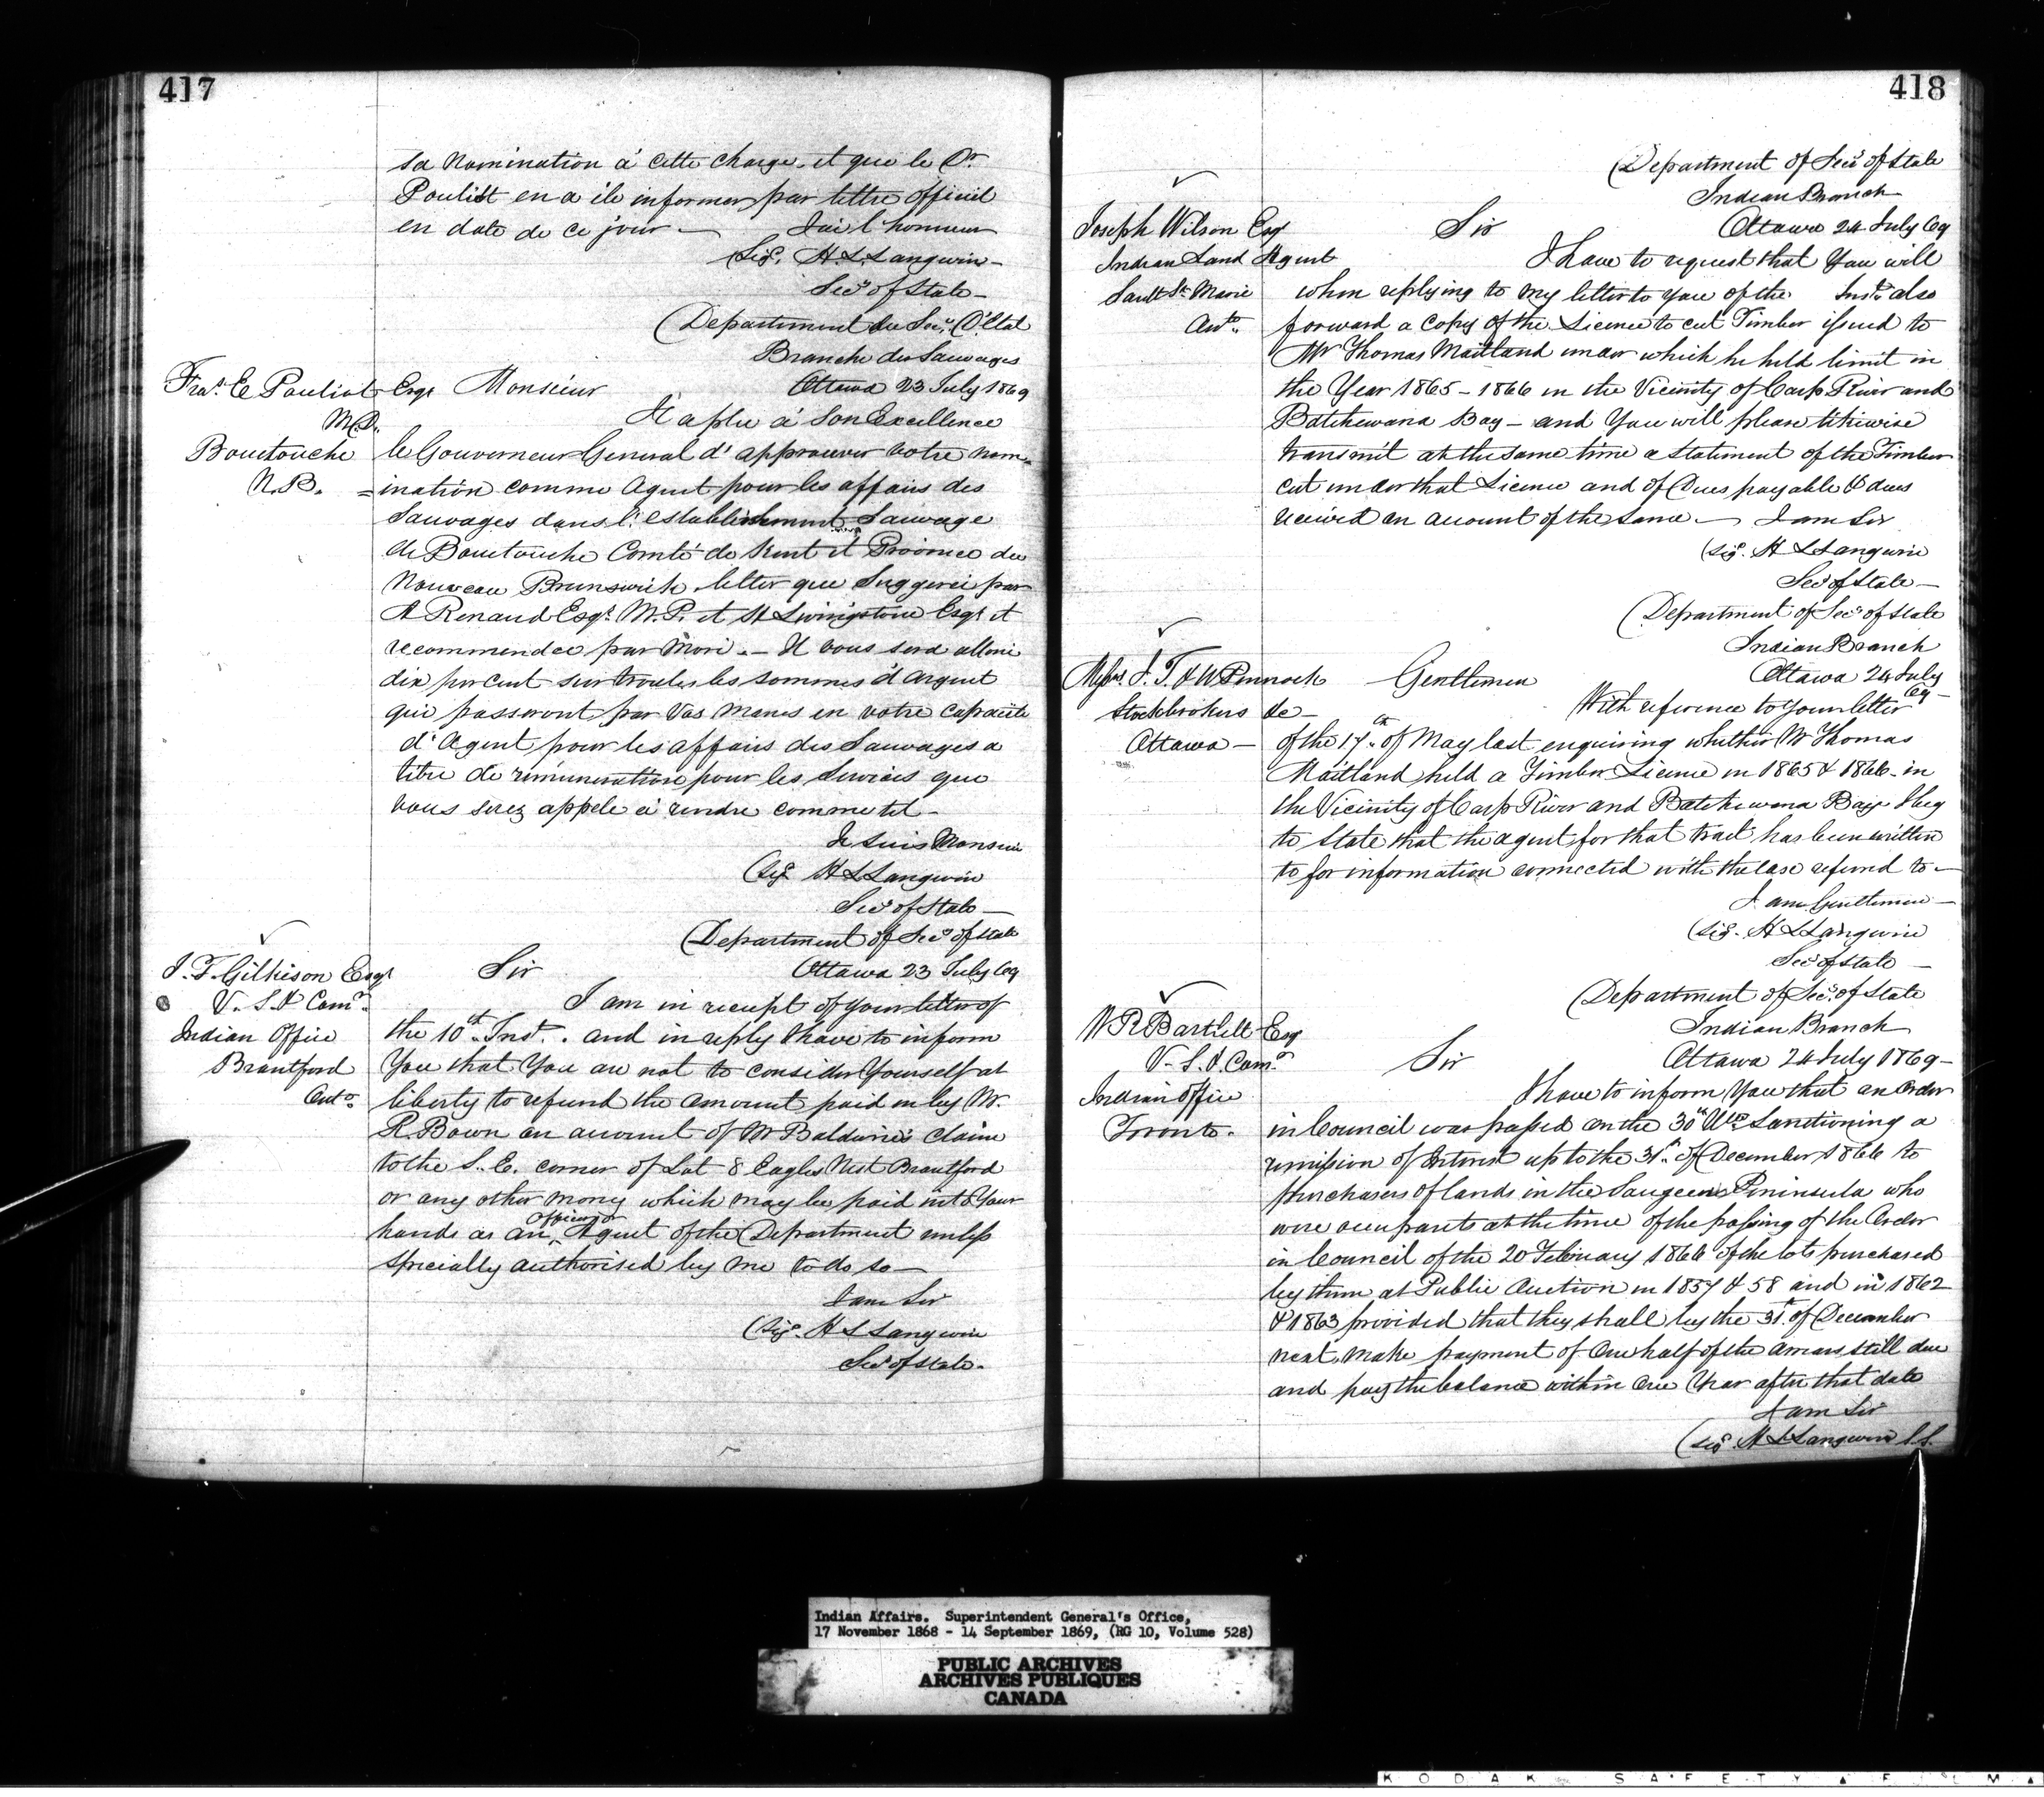 417
sa nomination à cette charge. et que le Dr
Pouliot en a ète informer par lettre officiel
en date de ce jour — J'ai l'honneur
(Sigd. H. L. Langevin —
Secy of State —
(Department du Secy. D'Etat
Branche des Sauvages
Ottawa 23 July 1869
Fras. E Pouliot Esqr
M.D.
Bouctouche
N.B.
Monsieur
Il a plu à Son Excellence
le Gouverneur General d'approuver votre nom-
=ination comme Agent pour les affairs des
Sauvages dans l'establishment Sauvage
de Bouctouche Comté de Kent et Province du
Nouveau Brunswick. letter que Suggerei par
A Renaud Esqr. M.P. et H Livingstone Esqr et
recommendee par Moi. — Il vous sera alloué
dix pircent sur troutes les sommes d'argent
qui passeront par Vos Mains en votre Capacité
d'Agent pour les affairs des Sauvages a
titre de rémuneration pour les Services que
vous serez appele à rendre comme tel —
Je suis Monsieur
(Sigd H L Langevin
Secy of State —
(Department of Secy of State
Ottawa 23 July 69
J. T. Gilkison Esqr
V. S. & Comr.
Indian Office
Brantford
Onto.
Sir
I am in receipt of your letter of
the 10th. Inst. . and in reply I have to inform
You that You are not to consider Yourself at
liberty to refund the amount paid in by Mr.
R Bown on account of Mr Baldwin's claim
to the S. E. corner of Lot 8 Eagles Nest Brantford
or any other money which may be paid into Your
hands as an Officer or Agent of the Department unless
specially authorised by me to do so —
I am Sir
(Sigd. H L Langevin
Secy of State.
418
(Department of Secy of State
Indian Branch
Ottawa 24 July 69
Joseph Wilson Esqr
Indian Land Agent
Sault Ste Marie
Onto.
Sir
I have to request that You will
when replying to my letter to you of the Inst. also
forward a Copy of the Licence to cut Timber issued to
Mr Thomas Maitland under which he held limit in
the Year 1865 – 1866 in the Vicinity of Carp River and
Batchewana Bay – and You will please likewise
transmit at the same time a statement of the Timber
cut under that Licence and of Dues payable & dues
received on account of the same — I am Sir
(Sigd. H L Langevin
Secy of State —
(Department of Secy of State
Indian Branch
Ottawa 24 July
69 —
Messrs. J. T. & W Pennock
Stockbrokers &c —
Ottawa —
Gentlemen
With reference to your letter
of the 17th of May last enquiring whether Mr Thomas
Maitland held a Timber Licence in 1865 & 1866 in
the Vicinity of Carp River and Batchewana Bay I beg
to State that the agent for that tract has been written
to for information connected with the case referred to —
I am Gentlemen —
(Sigd. H L Langevin
Secy of State —
(Department of Secy. of State
Indian Branch
Ottawa 24 July 1869 —
W R Bartlett Esq
V. S. & Comr.
Indian Office
Toronto.
Sir
I have to inform You that an Order
in Council was passed on the 30th Ulto. Sanctioning a
remission of Interest up to the 31st. of December 1866 to
purchasers of lands in the Saugeen Peninsula who
were occupants at the time of the passing of the Order
in Council of the 20 February 1866 of the lots purchased
by them at Public Auction in 1857 & 58 and in 1862
& 1863 provided that they shall by the 31st. of December
next, make payment of One half of the arrears still due
and pay the balance within One Year after that date
I am Sir
(Sigd. H L Langevin S.S.
Indian Affairs. Superintendent General's Office,
17 November 1868 - 14 September 1869, (RG 10, Volume 528)
PUBLIC ARCHIVES
ARCHIVES PUBLIQUES
CANADA
KODAK SAFETY FILM